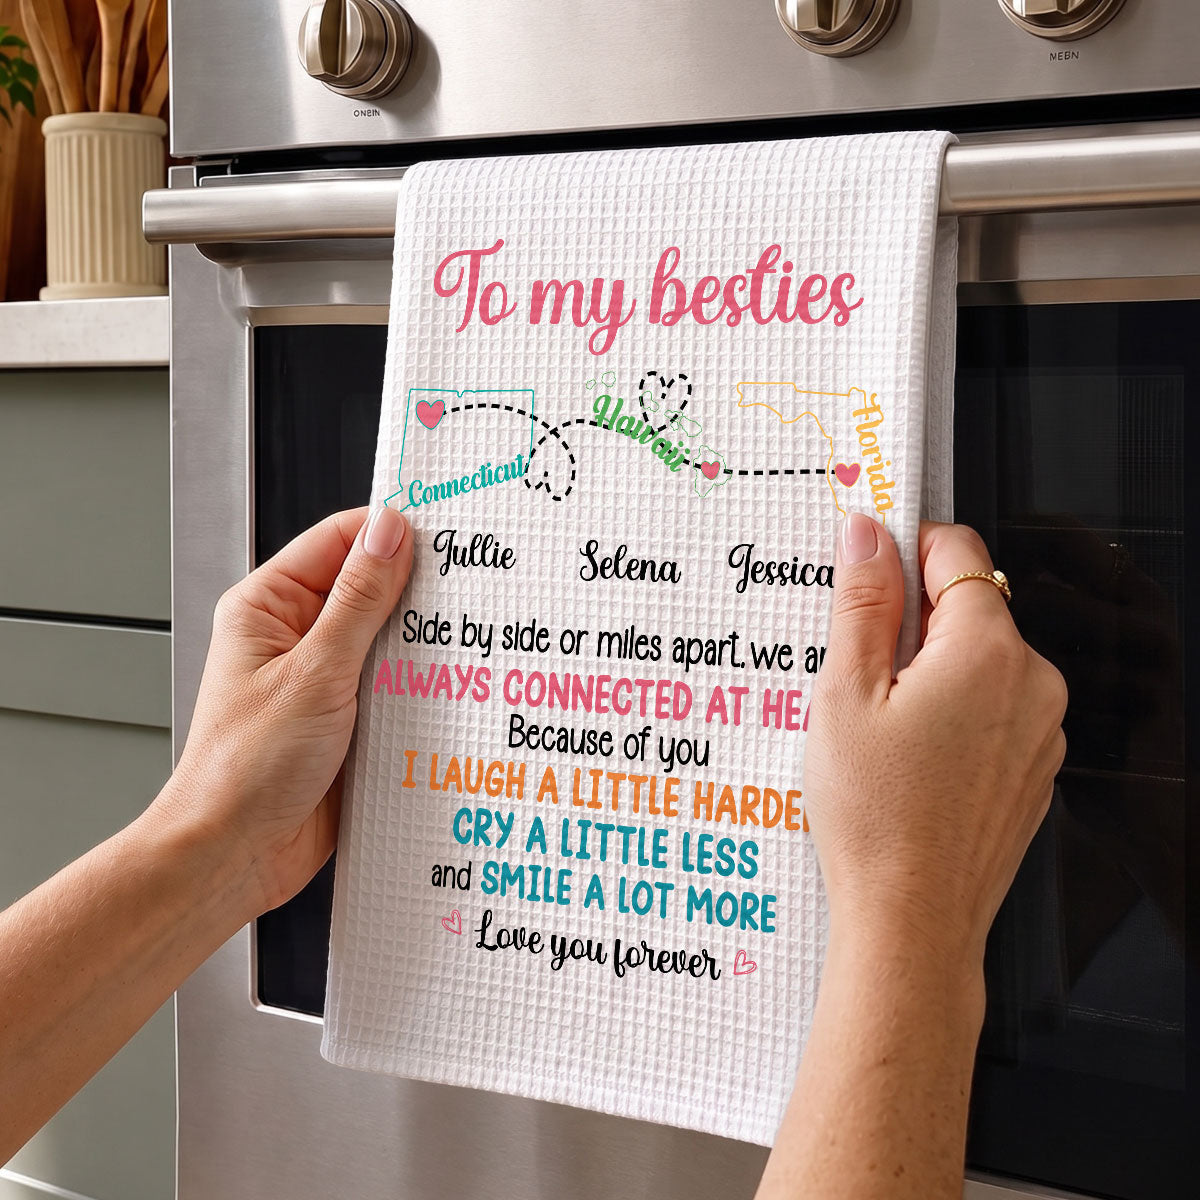 ONBIN
MEBN
To my besties
Hawaii
Florida
Connecticut
Jullie Selena Jessica
Side by side or miles apart. we a
ALWAYS CONNECTED AT HEA
Because of you
I LAUGH A LITTLE HARDER
CRY A LITTLE LESS
and SMILE A LOT MORE
Love you forever